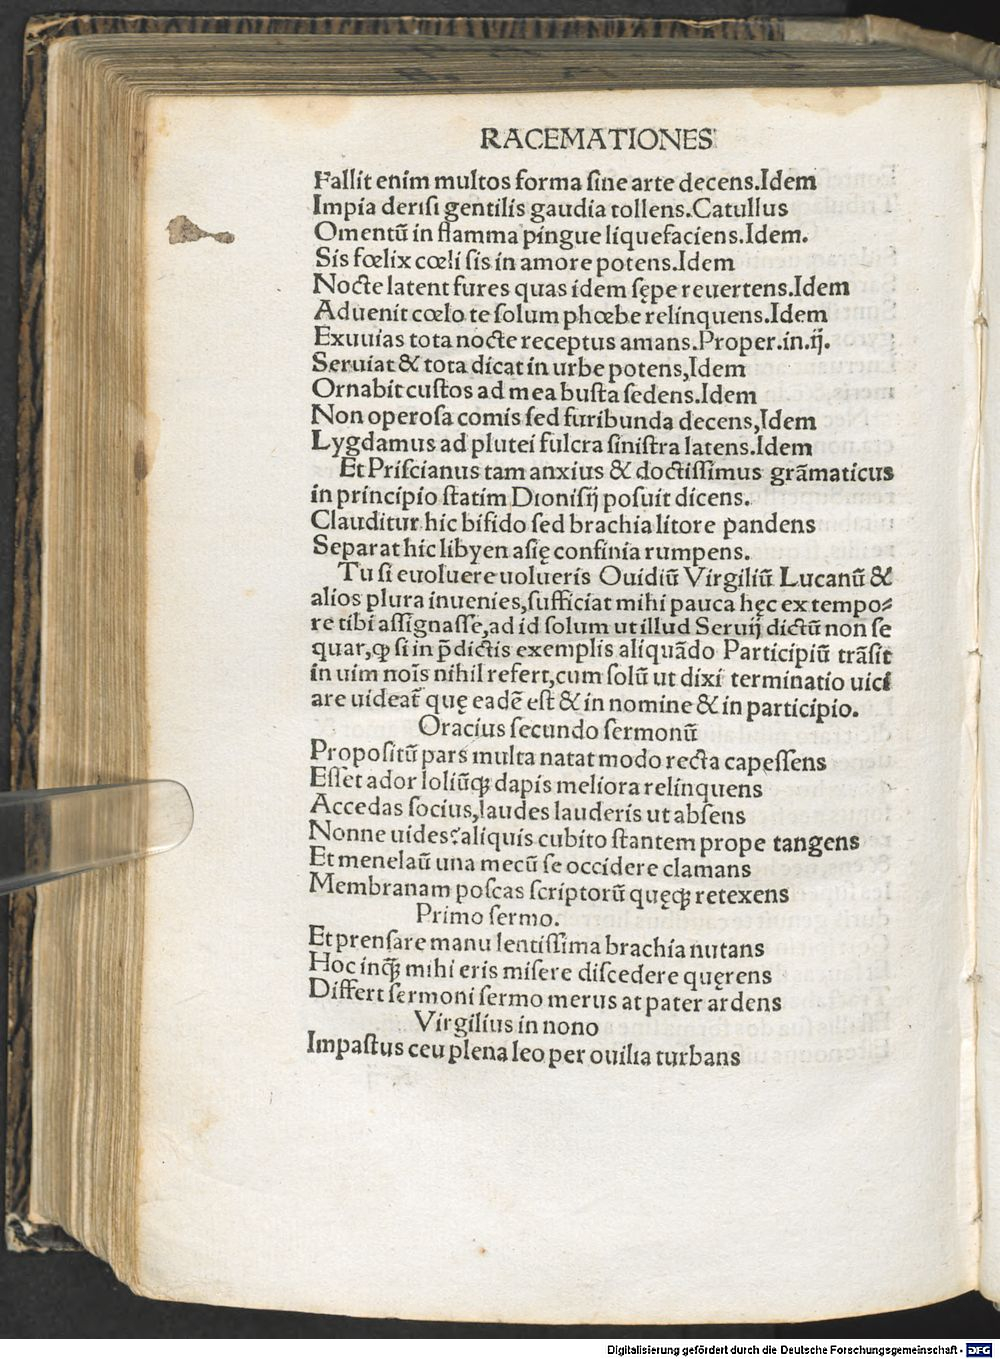 RACEMATIONES
Fallit enim multos forma ſine arte decens.Idem
Impia deriſi gentilis gaudia tollens.Catullus
Omentū in flamma pingue liquefaciens.Idem.
Sis fœlix cœli ſis in amore potens.Idem
Nocte latent fures quas idem ſępe reuertens.Idem
Aduenit cœlo te ſolum phœbe relinquens.Idem
Exuuias tota nocte receptus amans.Proper.in.ij.
Seruiat & tota dicat in urbe potens,Idem
Ornabit cuſtos ad mea buſta ſedens.Idem
Non operoſa comis ſed furibunda decens,Idem
Lygdamus ad plutei fulcra ſiniſtra latens.Idem
Et Priſcianus tam anxius & doctiſſimus grāmaticus
in principio ſtatim Dioniſij poſuit dicens.
Clauditur hic bifido ſed brachia litore pandens
Separat hic libyen aſię confinia rumpens.
Tu ſi euoluere uolueris Ouidiū Virgiliū Lucanū &
alios plura inuenies,ſufficiat mihi pauca hęc ex tempo⸗
re tibi aſſignaſſe,ad id ſolum ut illud Seruij dictū non ſe
quar,ꝙ ſi in p̄dictis exemplis aliquādo Participiū trāſit
in uim noīs nihil refert,cum ſolū ut dixi terminatio uici
are uideat᷑ quę eadē eſt & in nomine & in participio.
Oracius ſecundo ſermonū
Propoſitū pars multa natat modo recta capeſſens
Eſſet ador loliūqꝫ dapis meliora relinquens
Accedas ſocius,laudes lauderis ut abſens
Nonne uides?aliquis cubito ſtantem prope tangens
Et menelaū una mecū ſe occidere clamans
Membranam poſcas ſcriptorū quęqꝫ retexens
Primo ſermo.
Et prenſare manu lentiſſima brachia nutans
Hoc inqꝫ̄ mihi eris miſere diſcedere quęrens
Differt ſermoni ſermo merus at pater ardens
Virgilius in nono
Impaſtus ceu plena leo per ouilia turbans
Digitalisierung gefördert durch die Deutsche Forschungsgemeinschaft - DFG